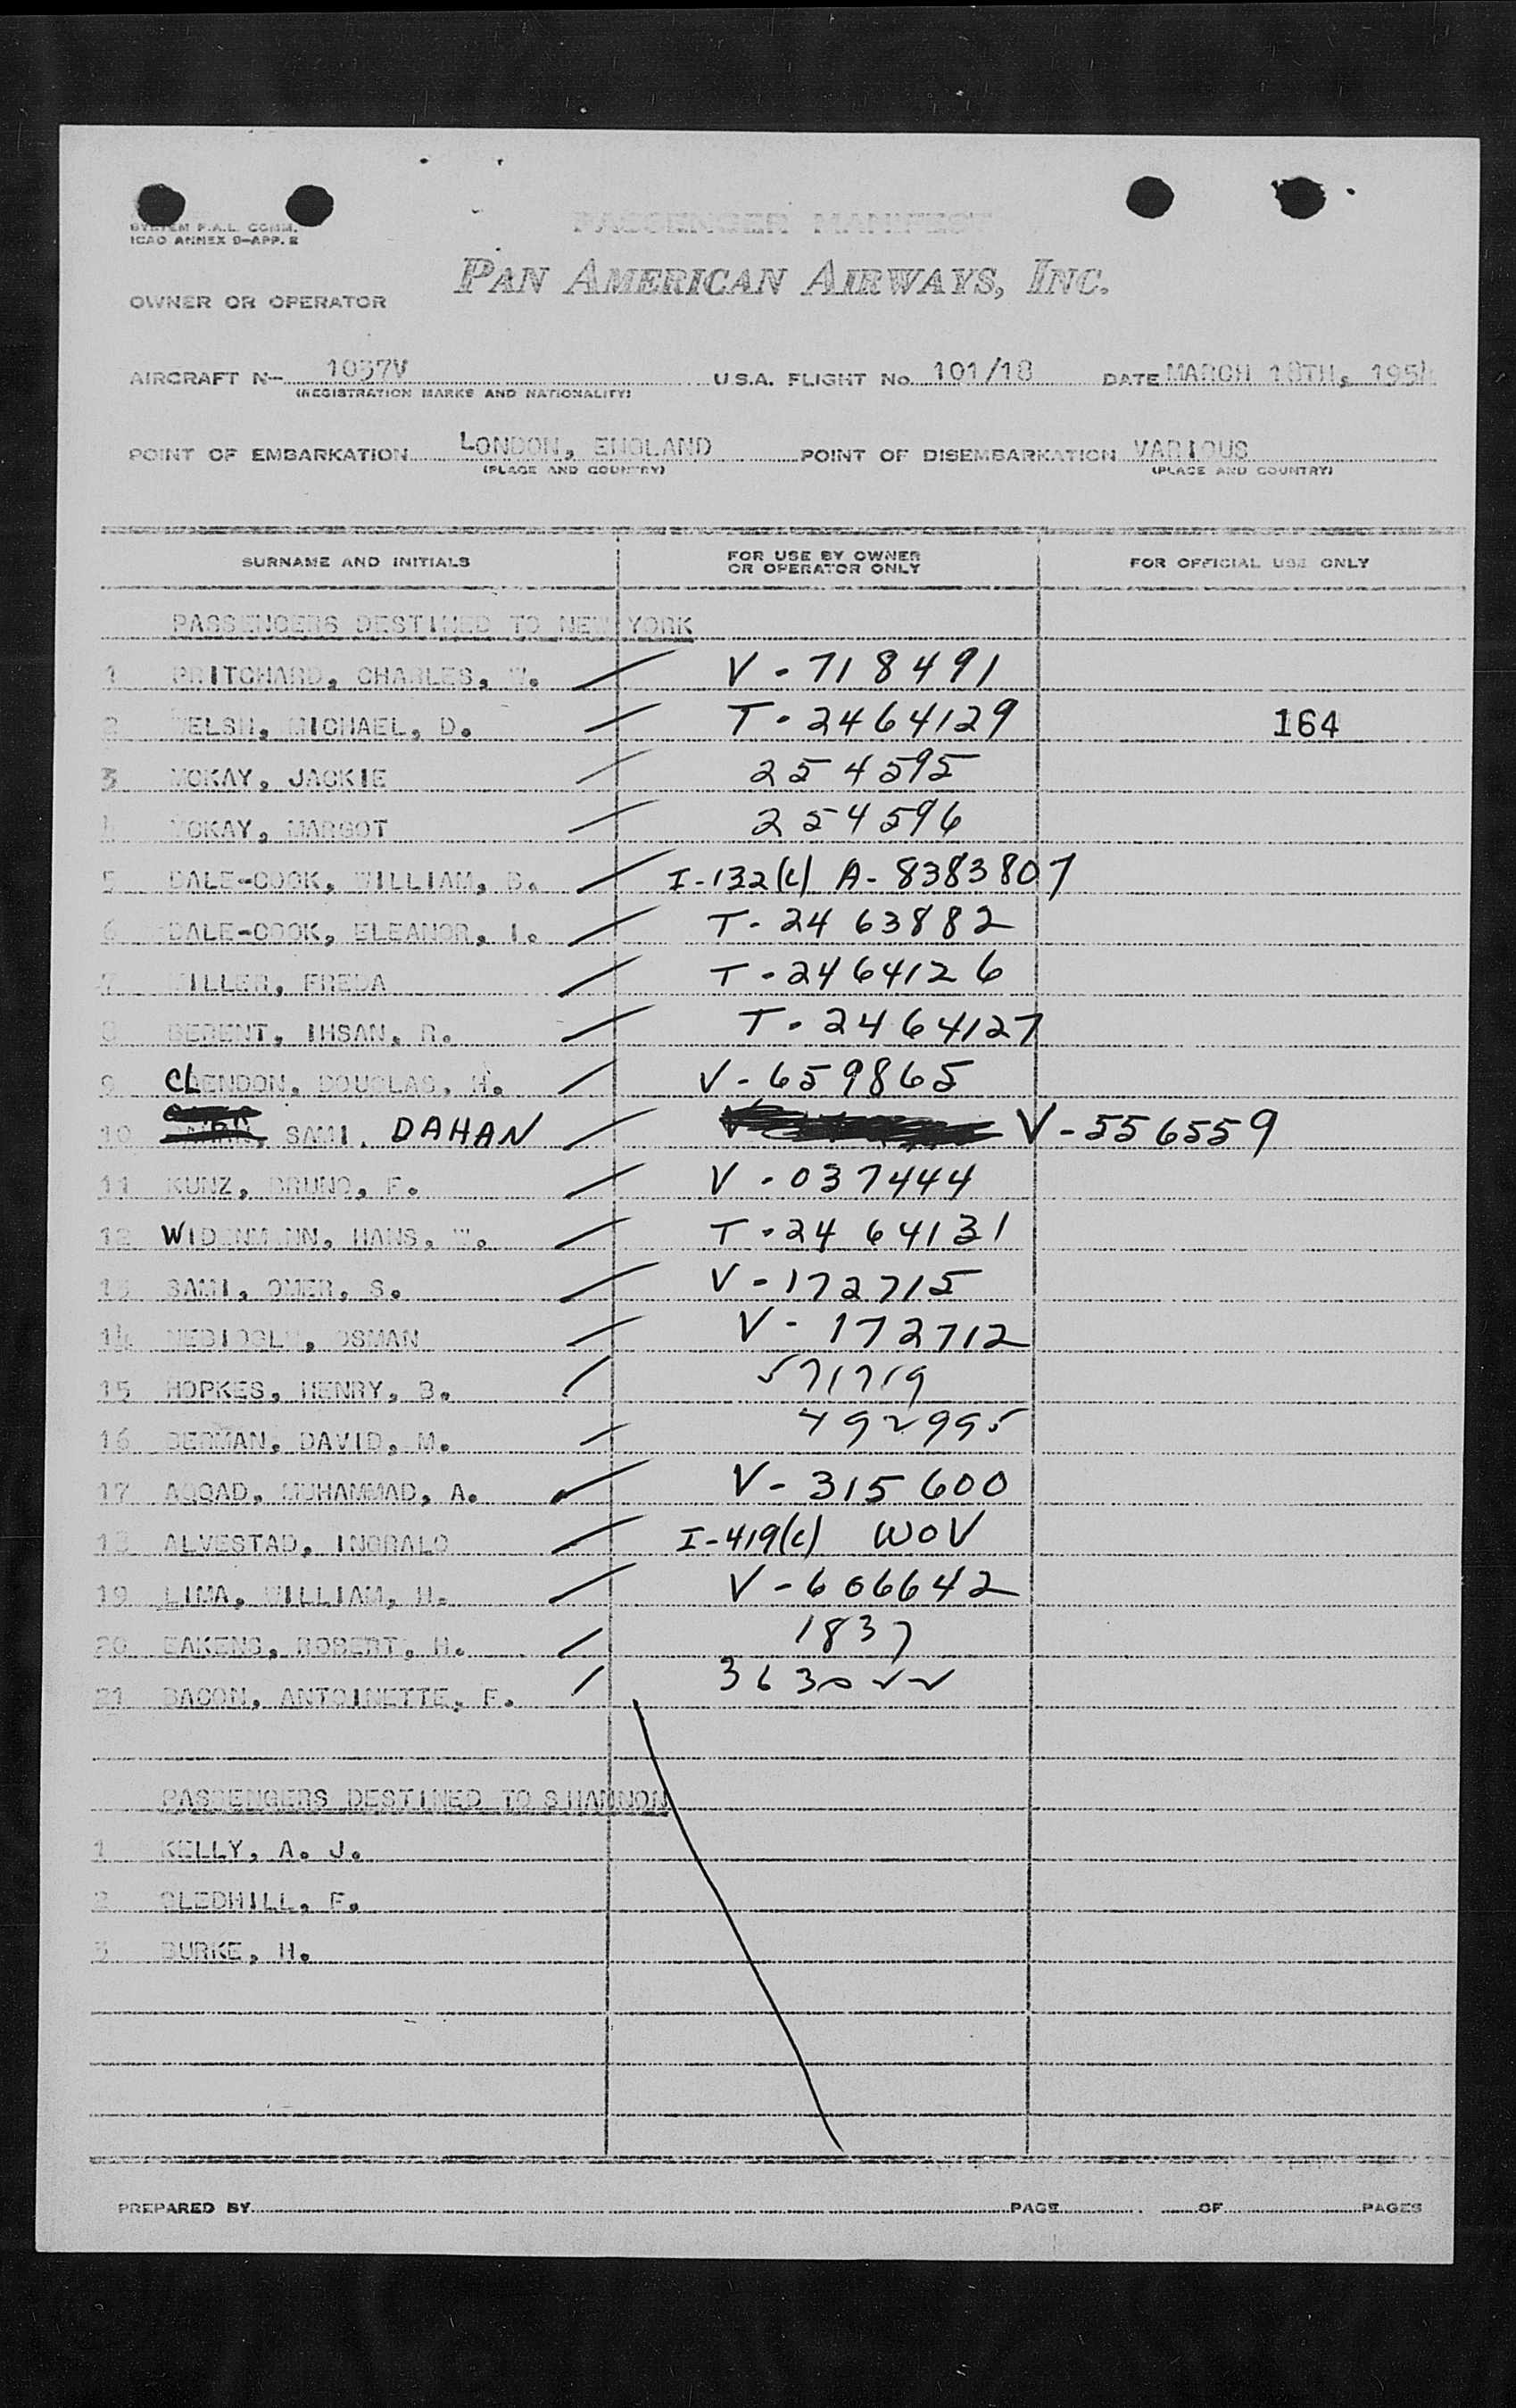 SYSTEM P.A.L. COMM.
ICAO ANNEX 9-APP. 2
PASSENGER MANIFEST
PAN AMERICAN AIRWAYS, INC.
OWNER OR OPERATOR
AIRCRAFT N- 1037V U.S.A. FLIGHT No. 101/18 DATE MARCH 18TH, 1954
(REGISTRATION MARKS AND NATIONALITY)
POINT OF EMBARKATION LONDON, ENGLAND POINT OF DISEMBARKATION VARIOUS
(PLACE AND COUNTRY) (PLACE AND COUNTRY)
SURNAME AND INITIALS FOR USE BY OWNER OR OPERATOR ONLY FOR OFFICIAL USE ONLY
PASSENGERS DESTINED TO NEW YORK
1 PRITCHARD, CHARLES, W. V-718491
2 WELSH, MICHAEL, D. T-2464129 164
3 MCKAY, JACKIE 254595
4 MCKAY, MARGOT 254596
5 DALE-COOK, WILLIAM, B. I-132(c) A-8383807
6 DALE-COOK, ELEANOR, I. T-2463882
7 MILLER, FREDA T-2464126
8 BERENT, IHSAN, R. T-2464127
9 CLENDON, DOUGLAS, H. V-659865
10 SAMI, DAHAN V-556559
11 KUNZ, BRUNO, F. V-037444
12 WIDENMANN, HANS, W. T-2464131
13 SAMI, OMER, S. V-172715
14 OSMAN V-172712
15 HOPKES, HENRY, B. 571719
16 BERMAN, DAVID, M. 492995
17 AQQAD, MUHAMMAD, A. V-315600
18 ALVESTAD, INGBALD I-419(c) WOV
19 LIMA, WILLIAM, H. V-606642
20 EAKENS, ROBERT, H. 1837
21 BACON, ANTOINETTE, F. 363022
PASSENGERS DESTINED TO SHANNON
1 KELLY, A. J.
2 GLEDHILL, F.
3 BURKE, H.
PREPARED BY PAGE OF PAGES